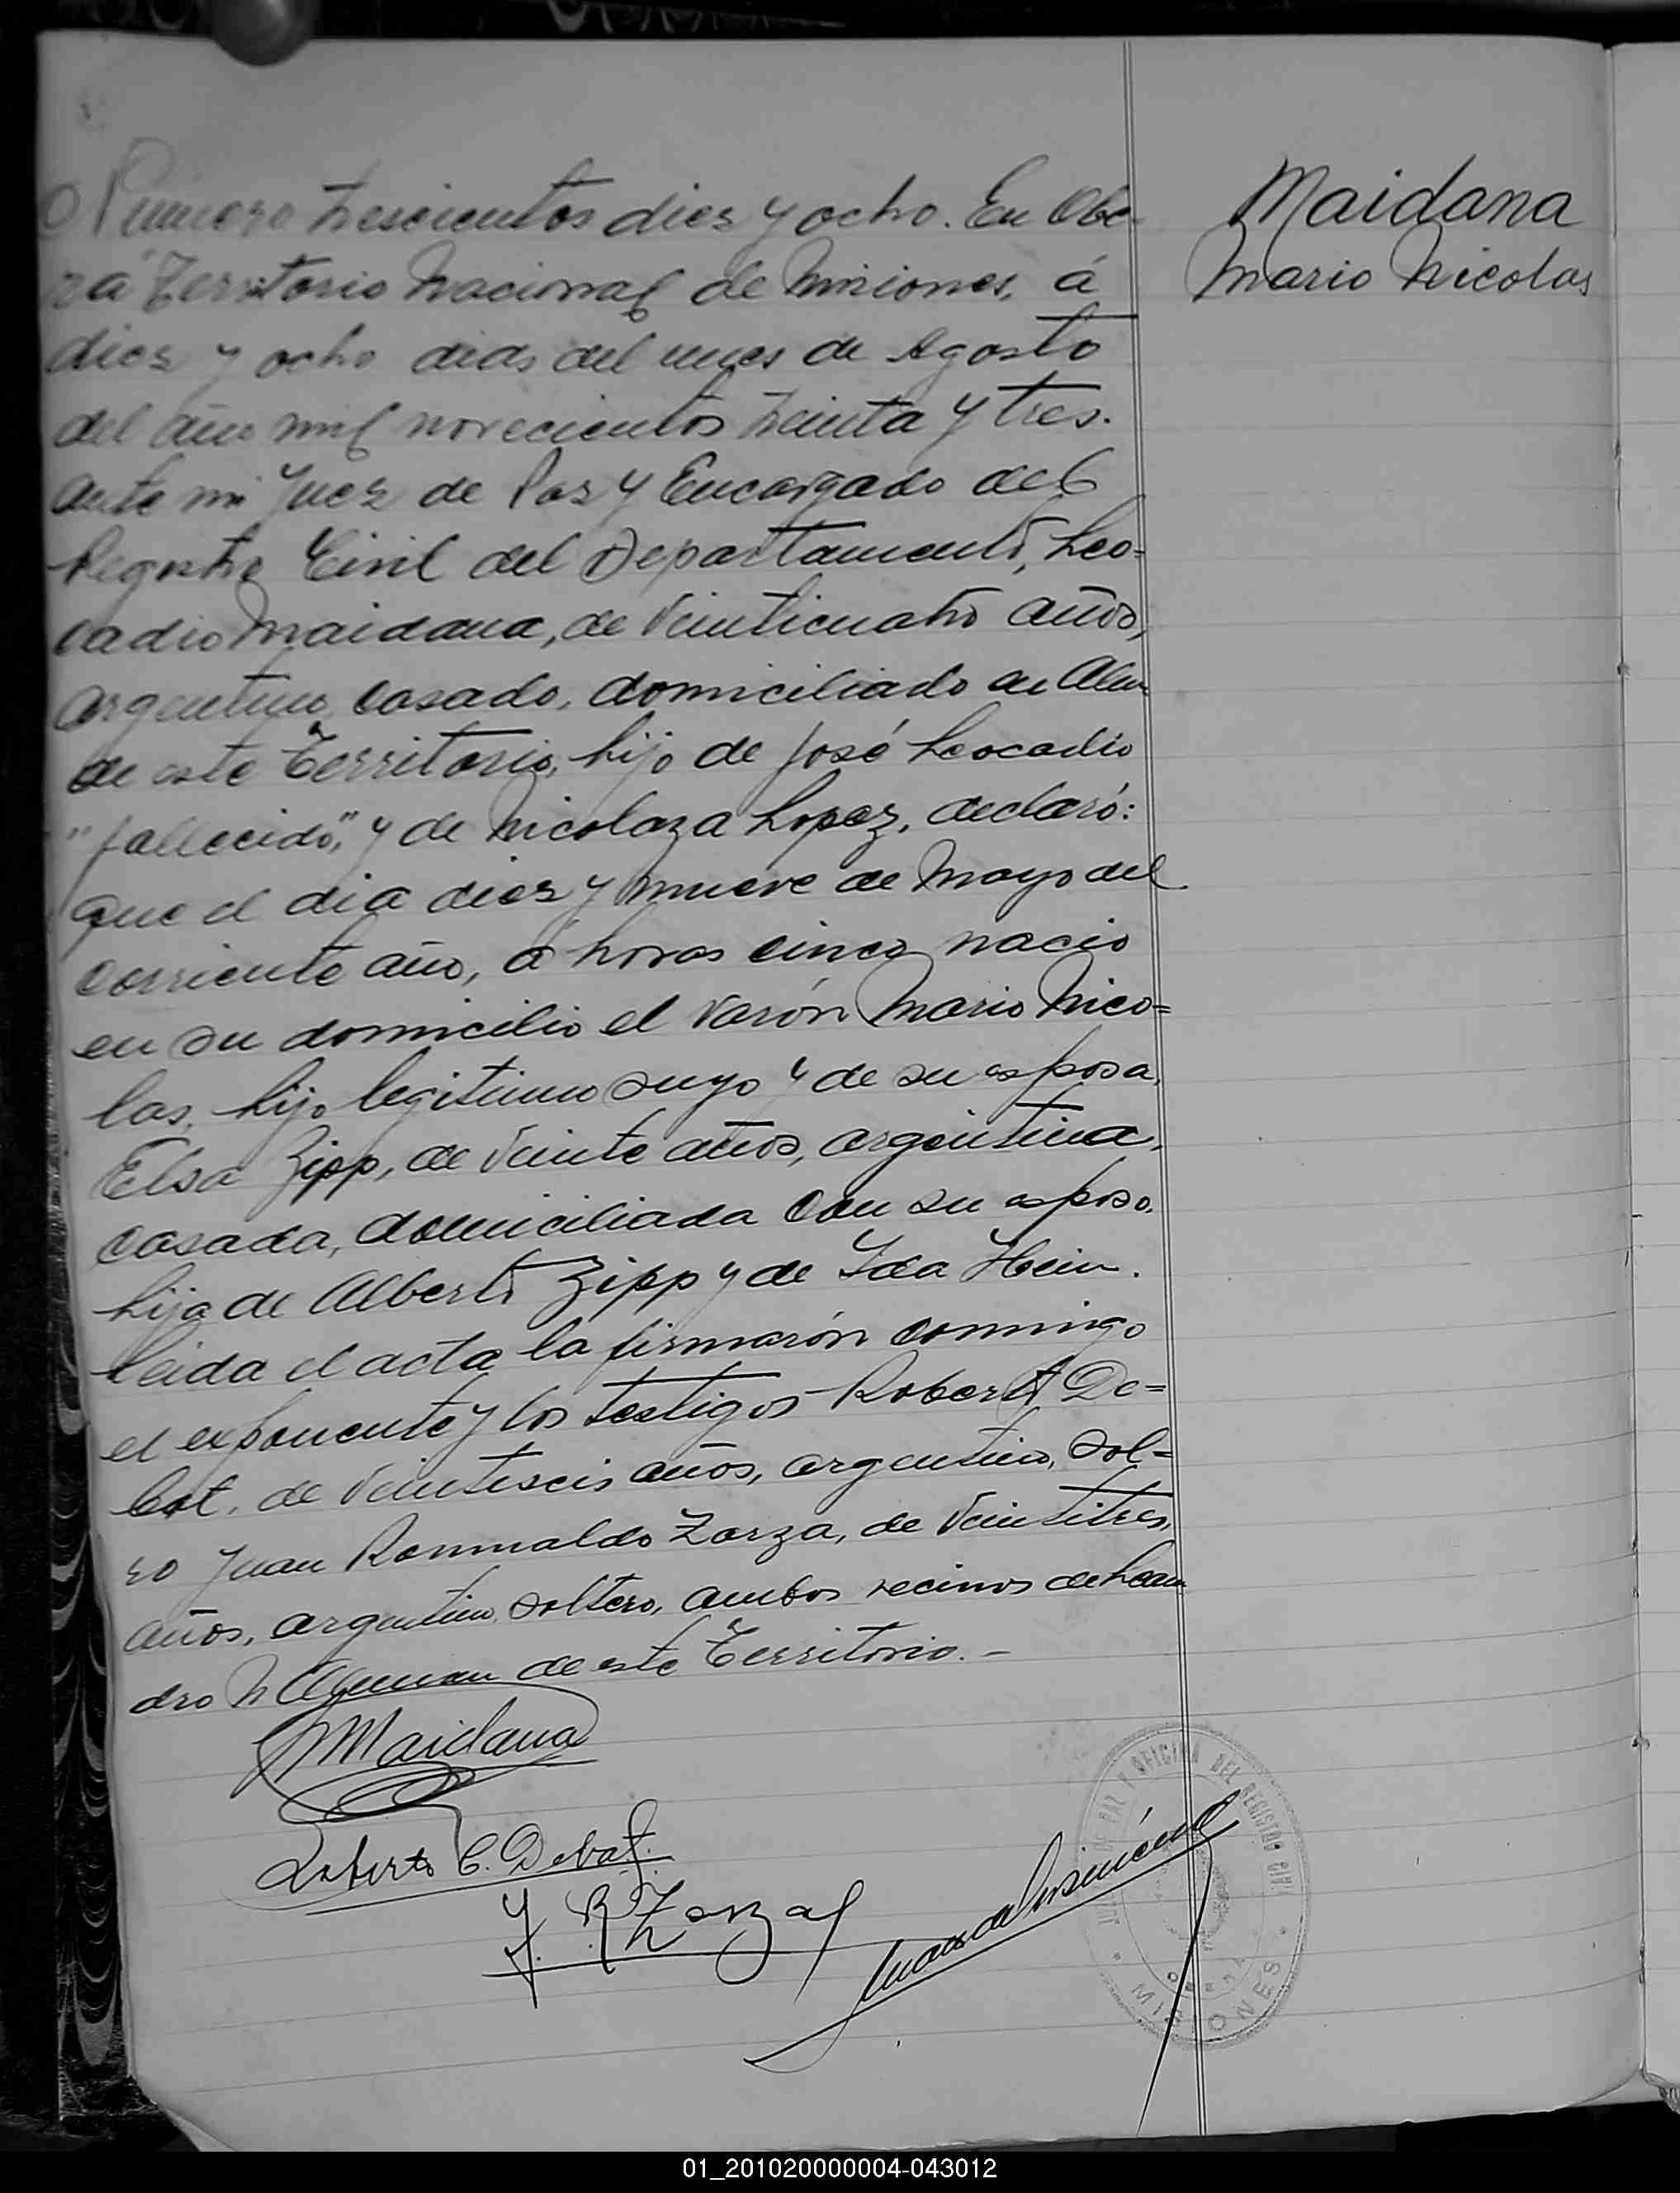 Numero trescientos diez y ocho. En Obe-
rá Territorio Nacional de Misiones, á
diez y ocho dias del mes de Agosto
del año mil novecientos treinta y tres.
ante mi Juez de Paz y Encargado del
Registro Civil del Departamento, Leo=
cadio Maidana, de Veinticuatro años,
argentino casado, domiciliado en Alem
de este Territorio, hijo de José Leocadio
"fallecido", y de Nicolaza Lopez, declaró:
que el dia diez y nueve de Mayo del
corriente año, á horas cinco nacio
en su domicilio el varón Mario Nico=
las, hijo legitimo suyo y de su esposa,
Elsa Zipp, de Veinte años, argentina,
casada, domiciliada con su esposo,
hija de Alberto Zipp y de Ida Hein.
leida el acta la firmarón conmigo
el exponente y los testigos Roberto De=
bat, de Veintiseis años, argentino, sol=
ro Juan Romualdo Zarza, de Veintitres,
años, argentino, soltero, ambos vecinos de Lean
dro N Alem de este Territorio. -
Maidana
Roberto C. Debat.
J. R. Zarza
Maidana
Mario Nicolas
DE PAZ Y OFICINA DEL REGISTRO CIVIL
OBERA
MISIONES
01_201020000004-043012